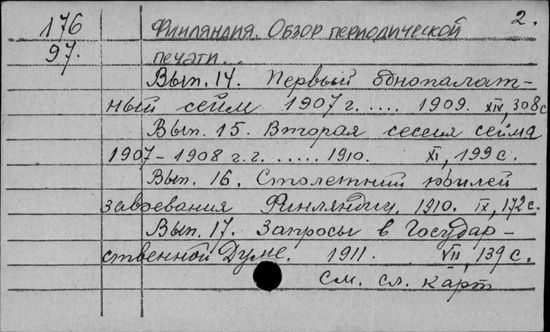 2.
176
97.
Финляндия. Обзор периодической
печати...
Вып. 14. Первый однопалат-
ный сейм 1907 г. ..... 1909. XIV, 308 с.
Вып. 15. Вторая сессия сейма
1907-1908 г.г. ...... 1910. XI, 199 с.
Вып. 16. Столетний юбилей
завоевания Финляндии. 1910. IX, 172 с.
Вып. 17. Запросы в Государ-
ственной Думе. 1911. VII, 139 с.
См. сл. карт